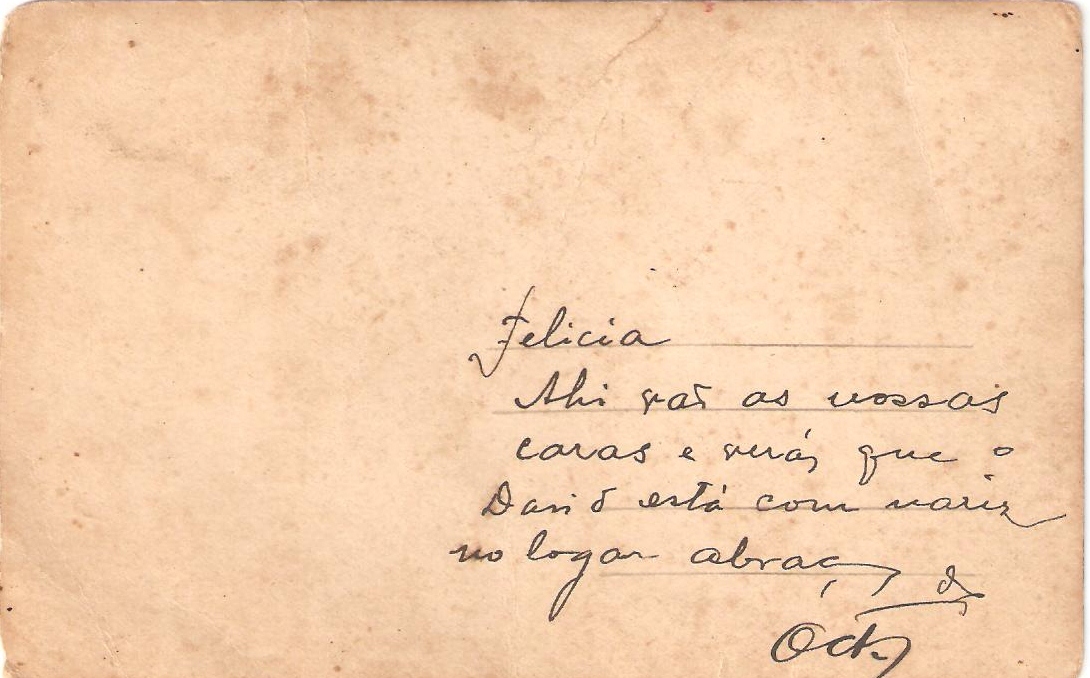 Felicia
Ahi vão as nossas
caras e verás que o
David está com nariz
no logar abraços do